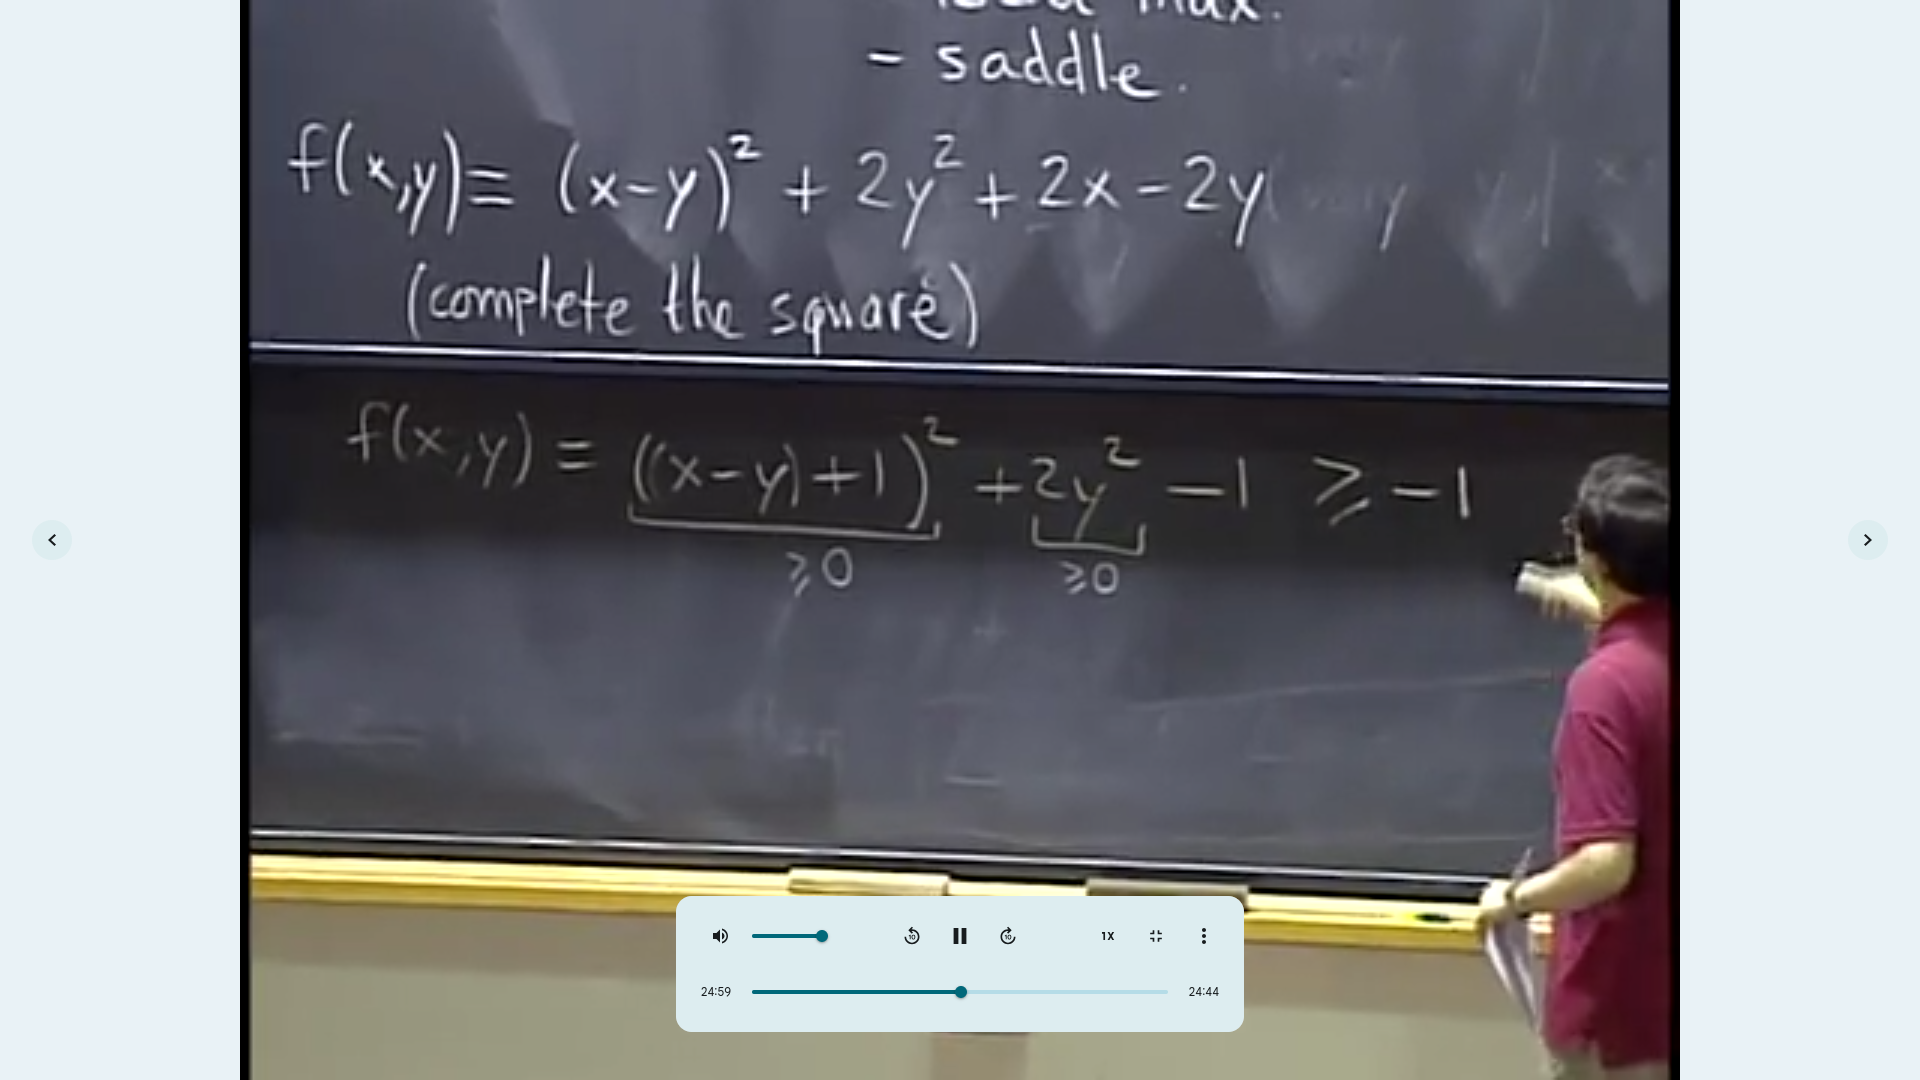 max.
- saddle.
f(x,y)≡ (x-y)² + 2y² + 2x - 2y
(complete the square)
f(x,y) = ((x-y)+1)² + 2y² - 1 ⩾ -1
⩾0 ⩾0
10 10 1X
24:59 24:44